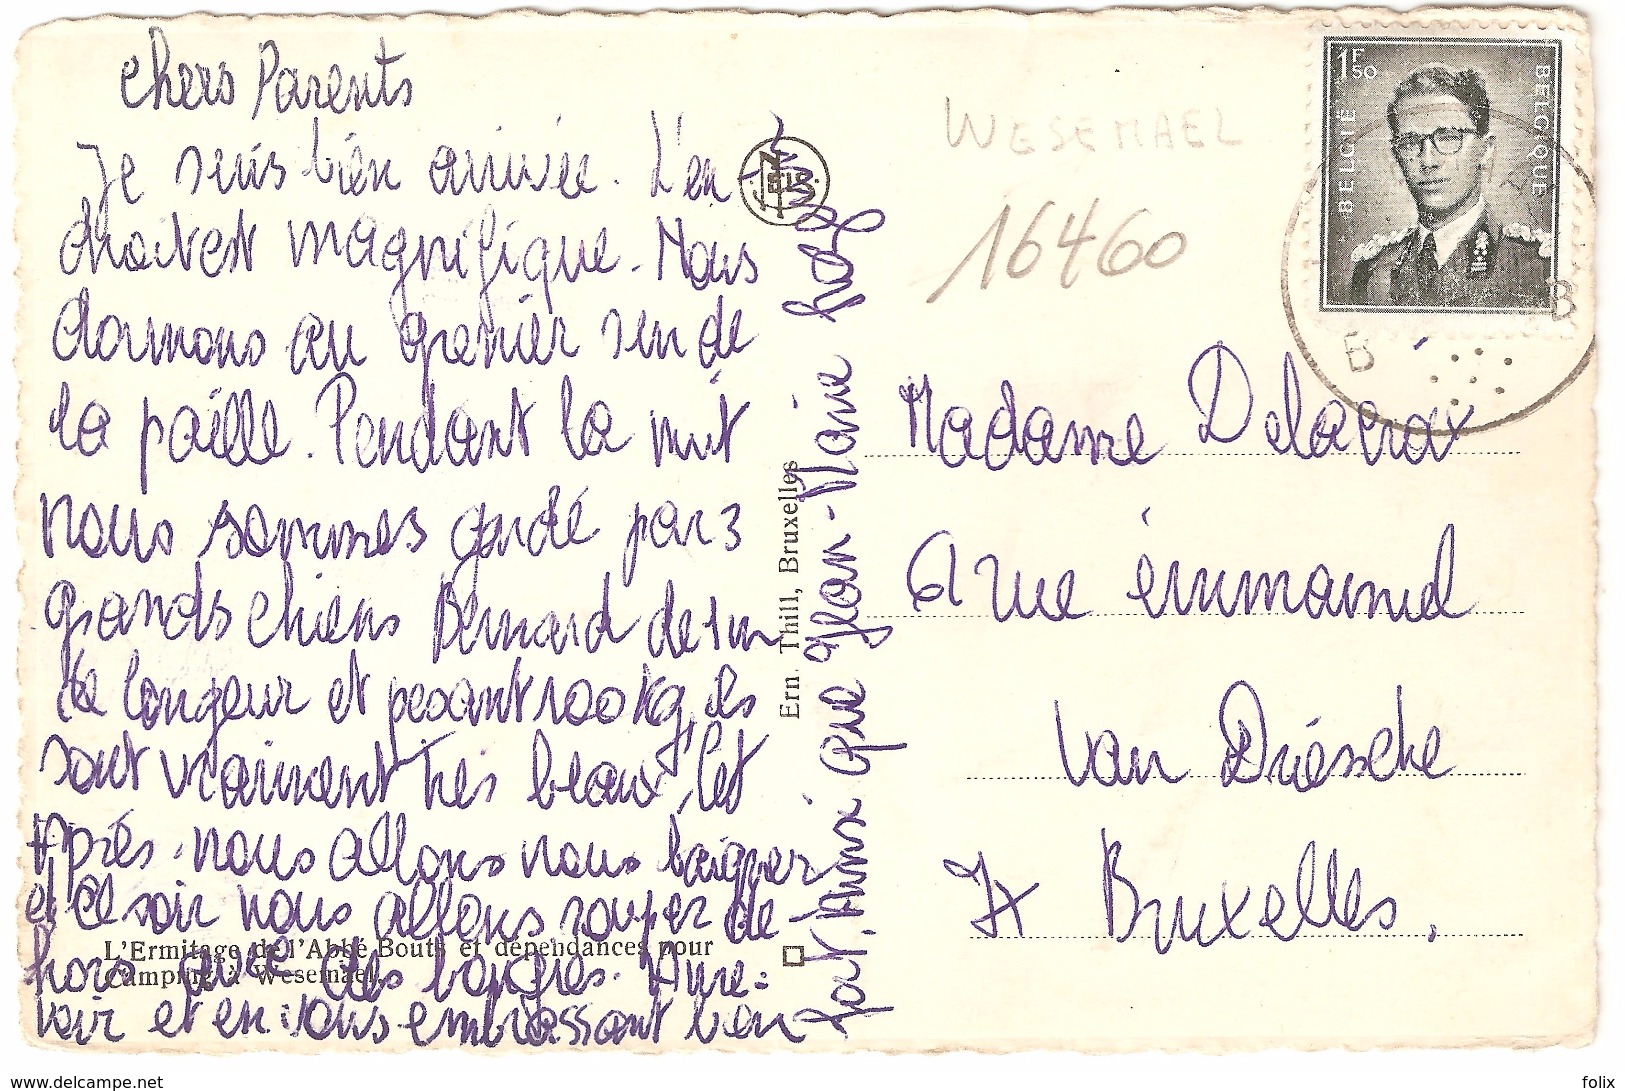 chers Parents
je suis bien arrivée. L'en-
droit est magnifique. Nous
dormons au grenier sur de
la paille. Pendant la nuit
nous sommes gardé par 3
grands chiens Bernard de 1 m
de longeur et pesant 100 kg, ils
sont vraiment très beaux, et
Après. nous allons nous baigner
et ce soir nous allons souper de-
hors avec des bougies. Aure=
voir et en vous embrassant bien
fort. Ainsi que Jean-Marie
L'Ermitage de l'Abbé Bouts et dépendances pour
Camping à Wesemael
Ern. Thill, Bruxelles
NELS
WESEMAEL
16460
1F50
BELGIË
BELGIQUE
B
B
Madame Delacroix
rue émmanuel
Van Driessche
Bruxelles.
www.delcampe.net
folix